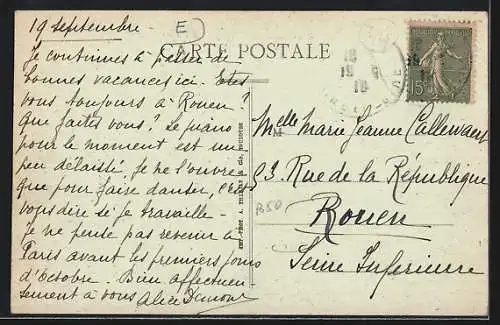 19 septembre
E
CARTE POSTALE
Je continues à passer de
bonnes vacances ici. Etes
vous toujours à Rouen?
Que faites vous? Le piano
pour le moment est un
peu délaissé, je ne l'ouvre
que pour faire danser, c'est
vous dire si je travaille -
Je ne pense pas revenir à
Paris avant les premiers jours
d'Octobre. Bien affectueu
sement à vous Alice
15c
Melle Marie Jeanne
Rue de la République
Rouen
Seine Inferieure
B50